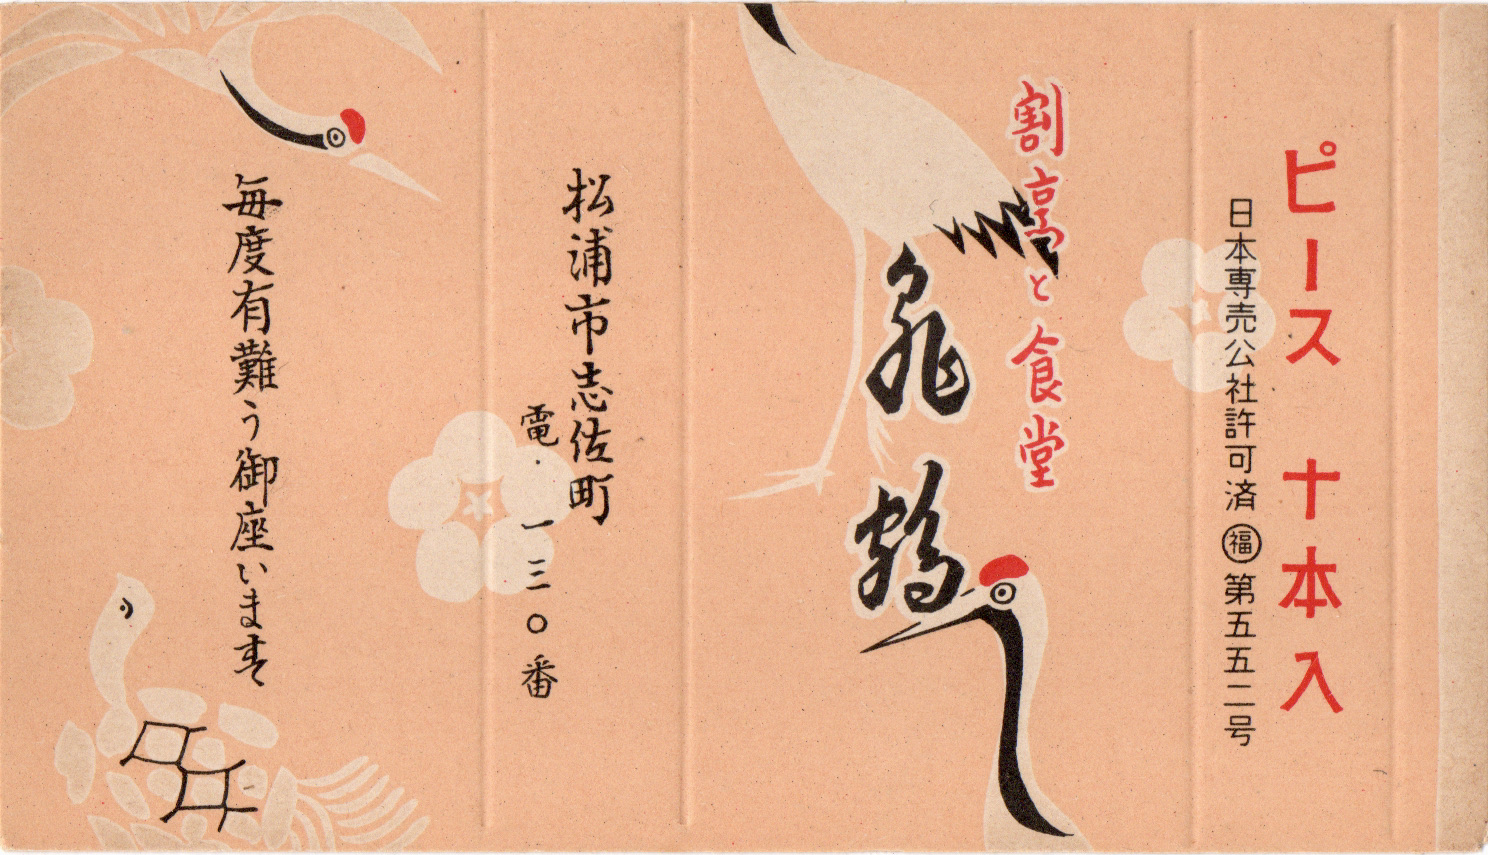 ピース 十本入
日本専売公社許可済 ㊞福 第五五二号
割烹と食堂
亀鶴
松浦市志佐町
電・一三〇番
毎度有難う御座います